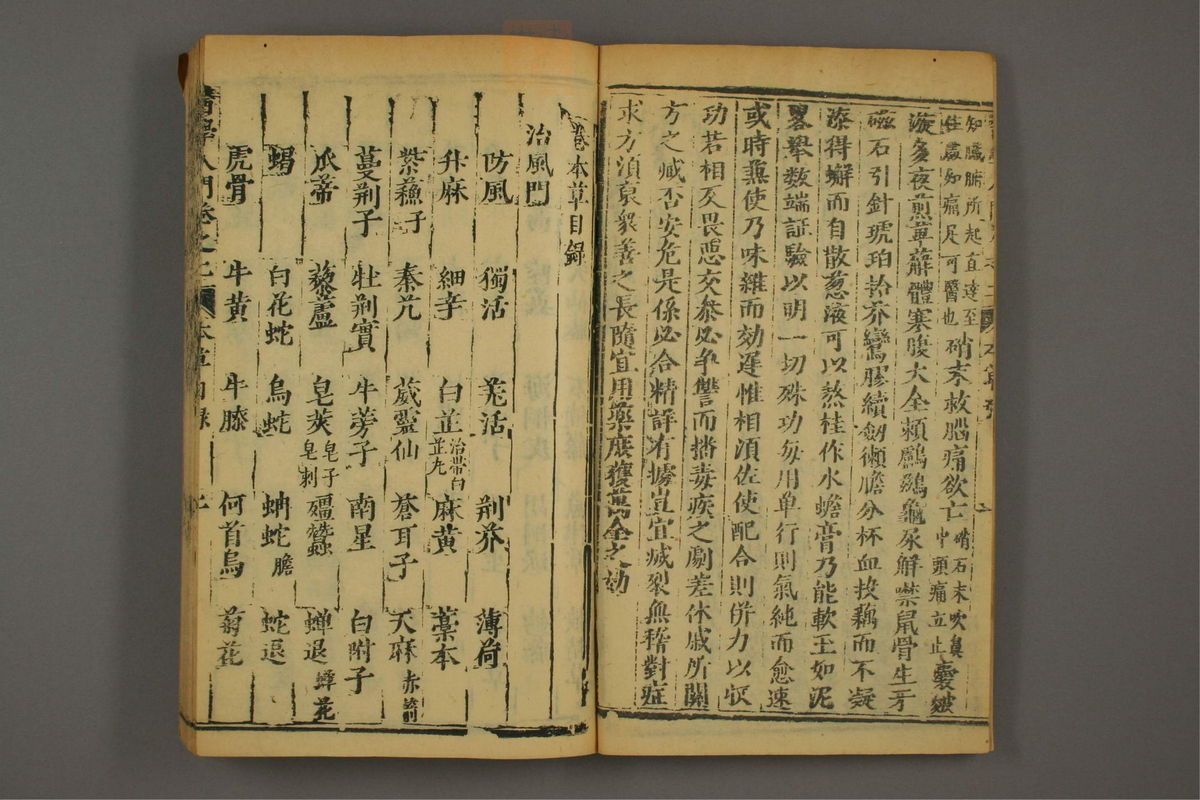 知臟腑所起直達至
住處知痛足可醫也硝末救腦痛欲亡硝石末吹鼻中頭痛立止憂皺
漩多夜煎萆薢體寒腹大全賴鸕鷀龜尿解噤鼠骨生牙
磁石引針琥珀拾芥鸞膠續劍獺膽分杯血投藕而不凝
漆得蠏而自散葱液可以熬桂作水蟾膏乃能軟玉如泥
畧舉數端証驗以明一切殊功每用单行則氣純而愈速
或時兼使乃味雜而効遲惟相須佐使配合則併力以収
功若相反畏惡交參必爭讐而播毒疾之劇差休戚所關
方之臧否安危是係必合精詳有據豈宜滅裂無稽對症
求方須裒衆善之長隨宜用藥庶獲萬全之効
卷本草目錄
治風門
防風 獨活 羌活 荆芥 薄荷
升麻 細辛 白芷治帶白芷丸 麻黃 藁本
紫蘇子 秦艽 葳靈仙 蒼耳子 天麻赤箭
蔓荆子 牡荆實 牛蒡子 南星 白附子
瓜蒂 藜蘆 皂莢皂子皂刺 殭蠶 蟬退蟬花
蝟 白花蛇 烏蛇 蚺蛇膽 蛇退
虎骨 牛黃 牛膝 何首烏 菊花
醫學入門卷之二 本草目錄 二